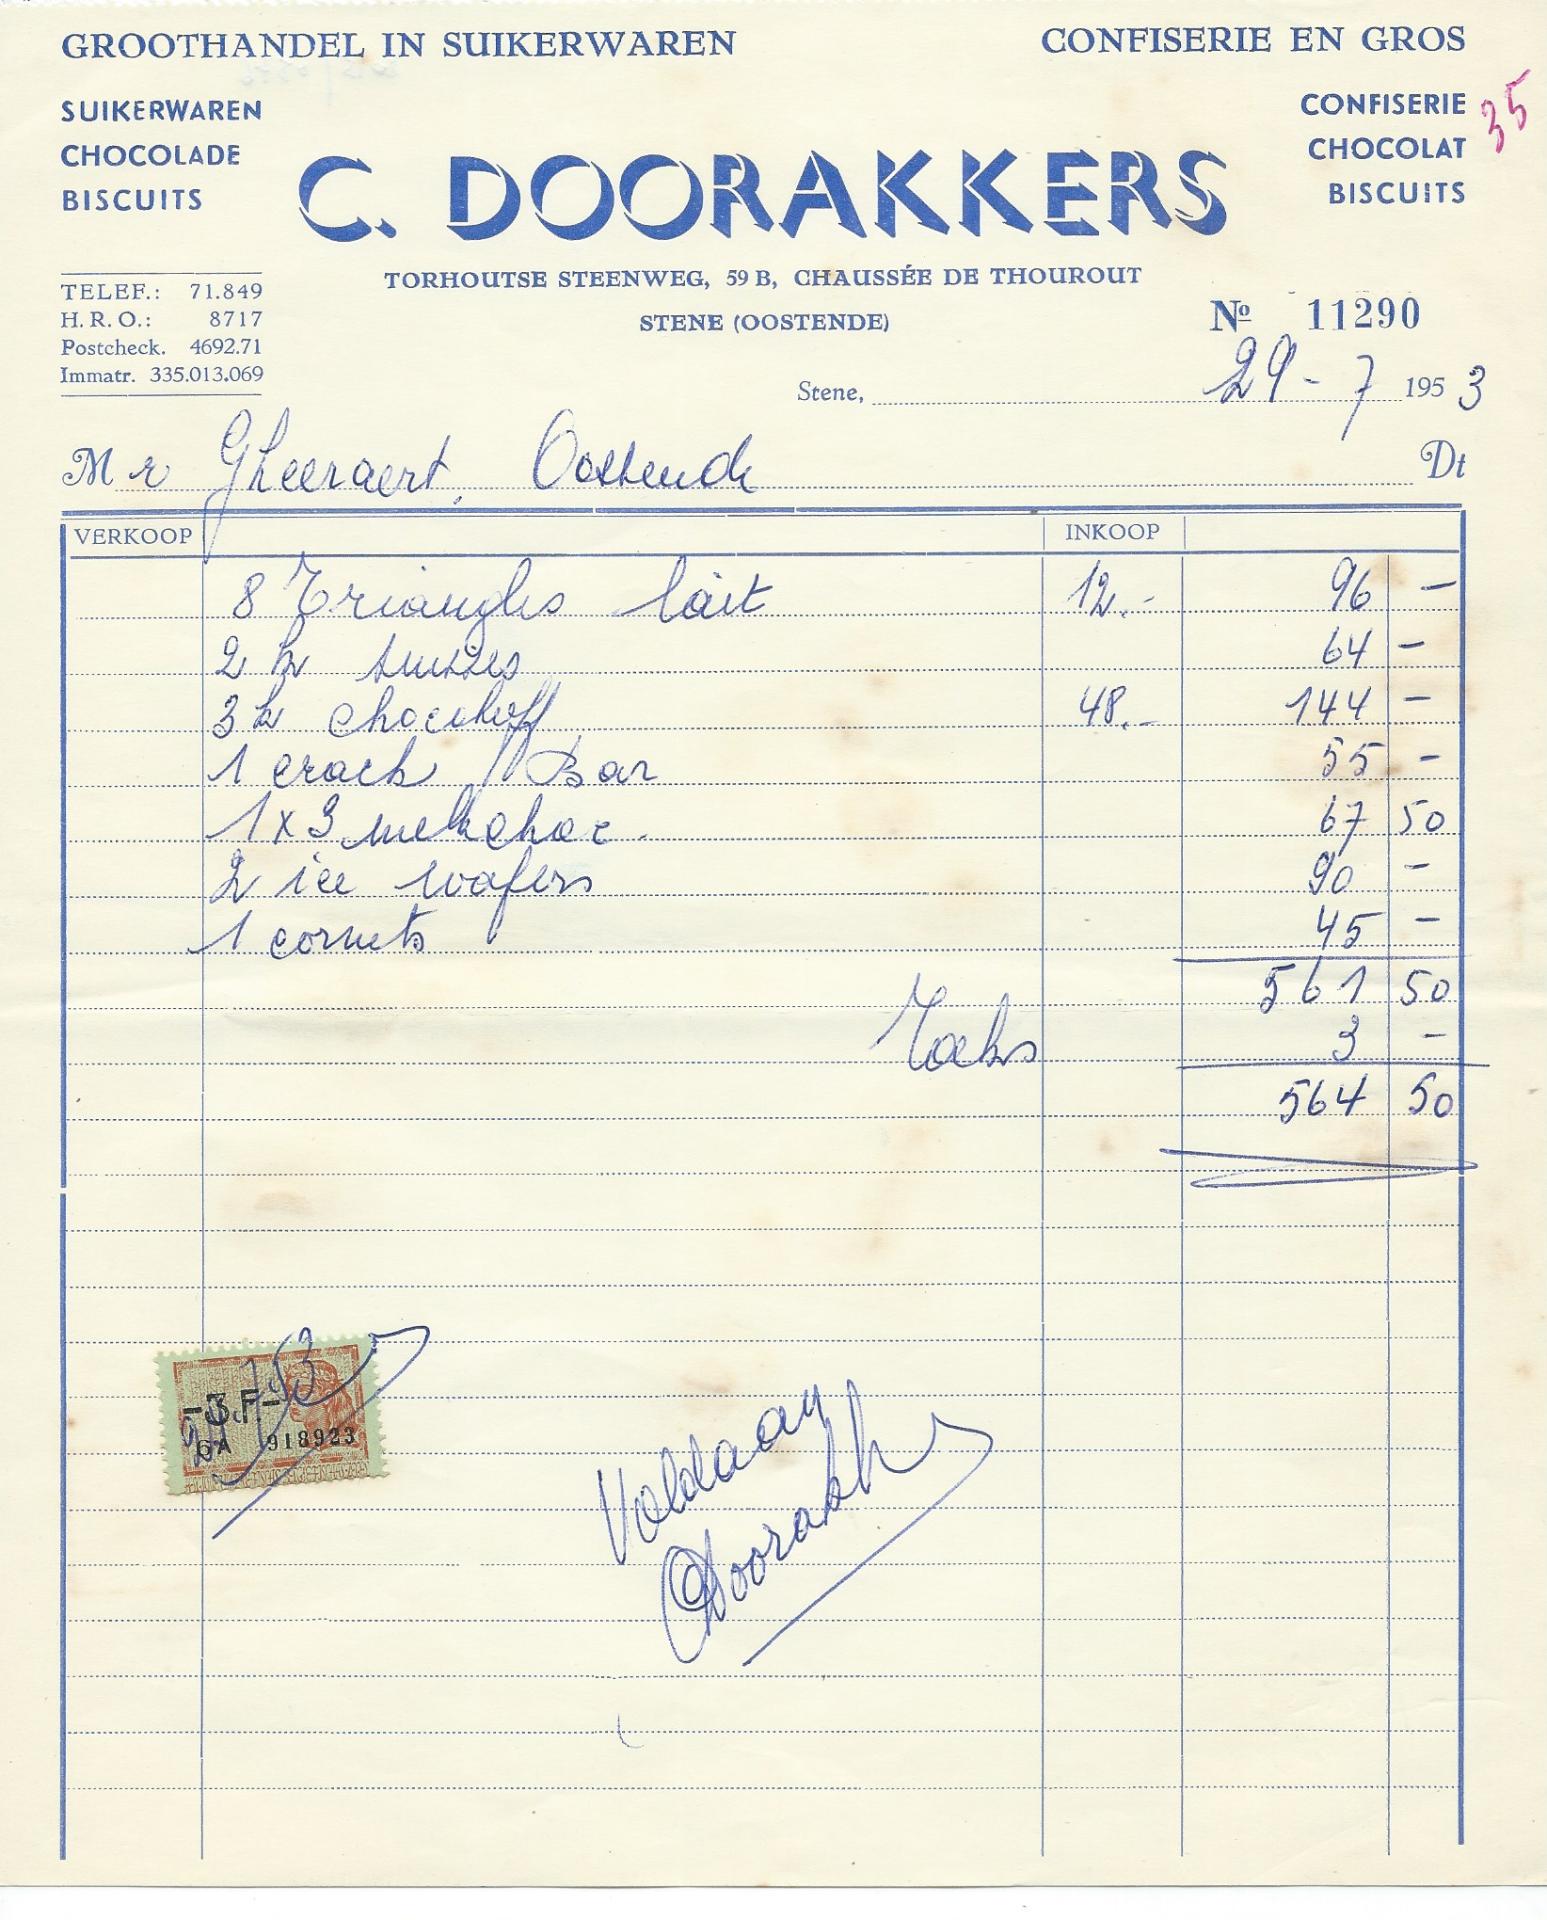 GROOTHANDEL IN SUIKERWAREN
CONFISERIE EN GROS
SUIKERWAREN
CHOCOLADE
BISCUITS
CONFISERIE
CHOCOLAT
BISCUITS
35
C. DOORAKKERS
TORHOUTSE STEENWEG, 59 B, CHAUSSÉE DE THOUROUT
STENE (OOSTENDE)
TELEF.: 71.849
H. R. O.: 8717
Postcheck. 4692.71
Immatr. 335.013.069
Nº 11290
Stene, 29 - 7 1953
Mr Gheeraert, Oostende Dt
VERKOOP INKOOP
8 Triangles lait 12.- 96 -
2 k suisses 64 -
3 k chocotoff 48.- 144 -
1 crack Bar 55 -
1 x 3 melkchoc. 67 50
2 ice wafers 90 -
1 cornets 45 -
561 50
Taks 3 -
564 50
-3 F.-
6A 918923
Voldaan
Doorakk